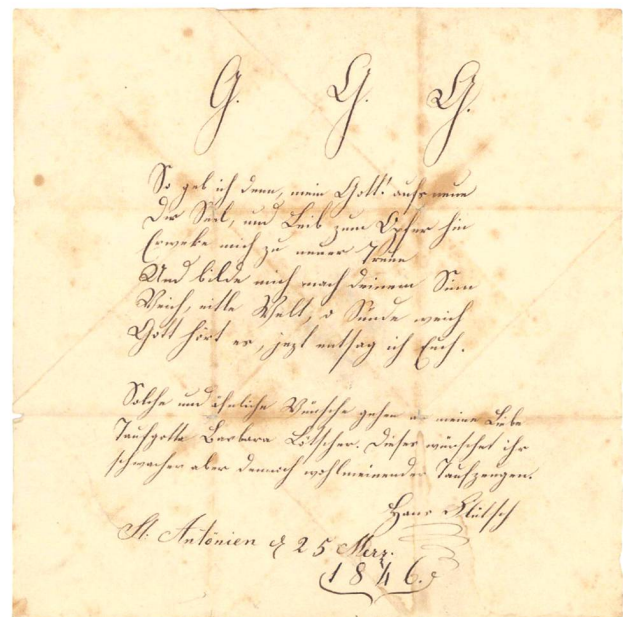 G. G. G.
So geb ich denn, mein Gott! aufs neue
Dir Seel, und Leib zum Opfer hin
Erweke mich zu neuer Treue
Und bilde mich nach deinem Sinn
Weich, eitle Welt, o Sünde weich
Gott hört es, jezt entsag ich Euch.
Solche und ähnliche Wünsche gehen an meine Liebe
Taufgotta Barbara Lötscher. Dieses wünschet ihr
schwacher aber dennoch wohlmeinender Taufzeugen.
Hans Flütsch
St. Antönien d 25 Merz.
1846.